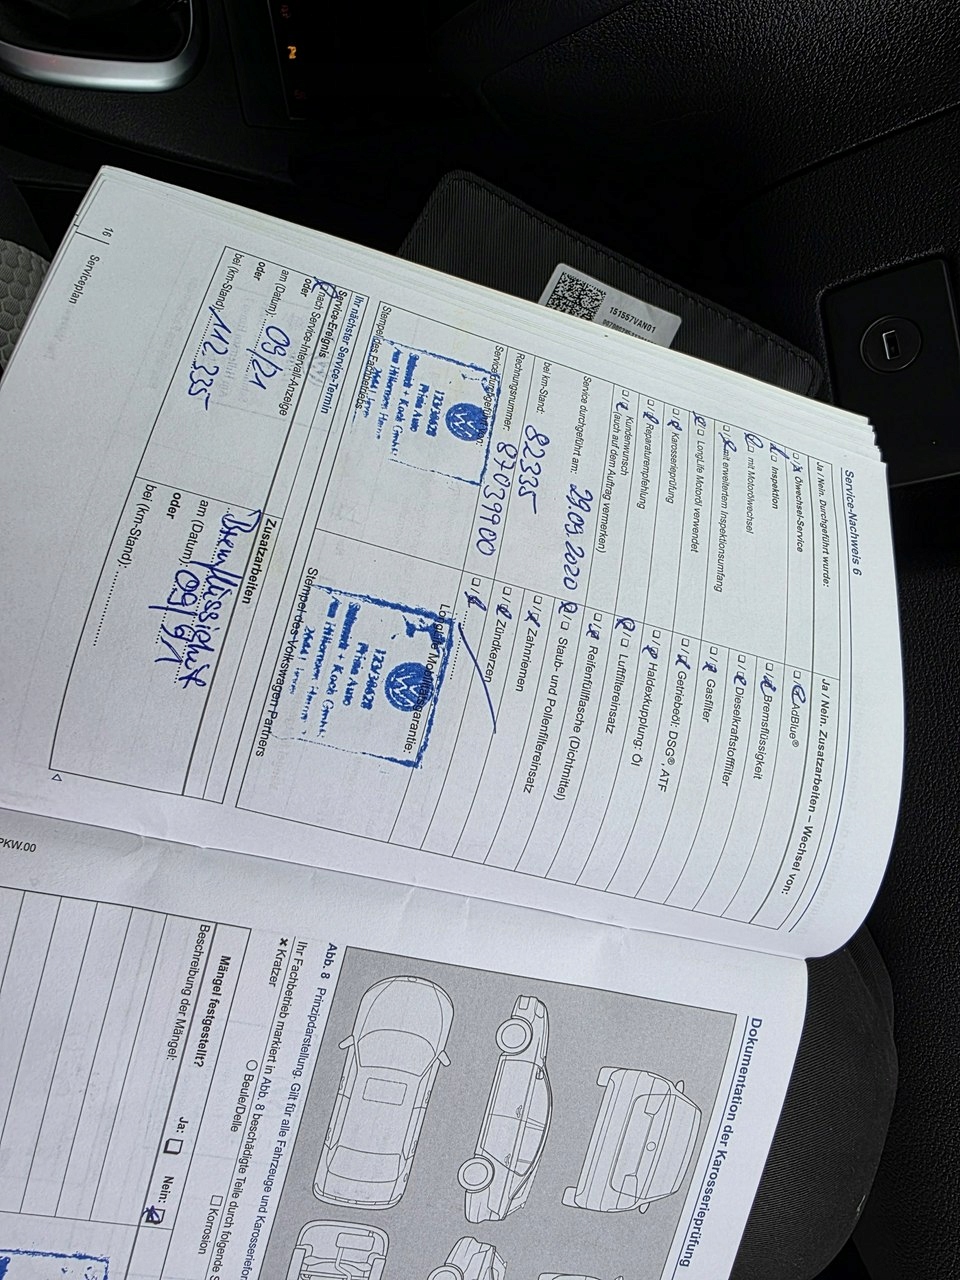 Service-Nachweis 6
Ja / Nein. Durchgeführt wurde:
Ölwechsel-Service
Inspektion
mit Motorölwechsel
mit erweitertem Inspektionsumfang
LongLife Motoröl verwendet
Karosserieprüfung
Reparaturempfehlung
Kundenwunsch
(auch auf dem Auftrag vermerken)
Service durchgeführt am: 29.09.2020
bei km-Stand: 82335
Rechnungsnummer: 87039900
Service durchgeführt von:
Stempel des Fachbetriebs
Ja / Nein. Zusatzarbeiten – Wechsel von:
AdBlue®
Bremsflüssigkeit
Dieselkraftstofffilter
Gasfilter
Getriebeöl: DSG®, ATF
Haldexkupplung: Öl
Luftfiltereinsatz
Reifenfüllflasche (Dichtmittel)
Staub- und Pollenfiltereinsatz
Zahnriemen
Zündkerzen
LongLife Mobilitätsgarantie:
Stempel des Volkswagen Partners
Ihr nächster Service-Termin
Service-Ereignis
nach Service-Intervall-Anzeige
oder
am (Datum): 09/21
oder
bei (km-Stand): 112.335
Zusatzarbeiten
Bremflüssigkeit
am (Datum): 09/21
oder
bei (km-Stand):
16 | Serviceplan
151557VAN01
PKW.00
Dokumentation der Karosserieprüfung
Abb. 8 Prinzipdarstellung. Gilt für alle Fahrzeuge und
Ihr Fachbetrieb markiert in Abb. 8 beschädigte Teile durch folgende
× Kratzer
○ Beule/Delle
□ Korrosion
Mängel festgestellt?
Ja:
Nein:
Beschreibung der Mängel: